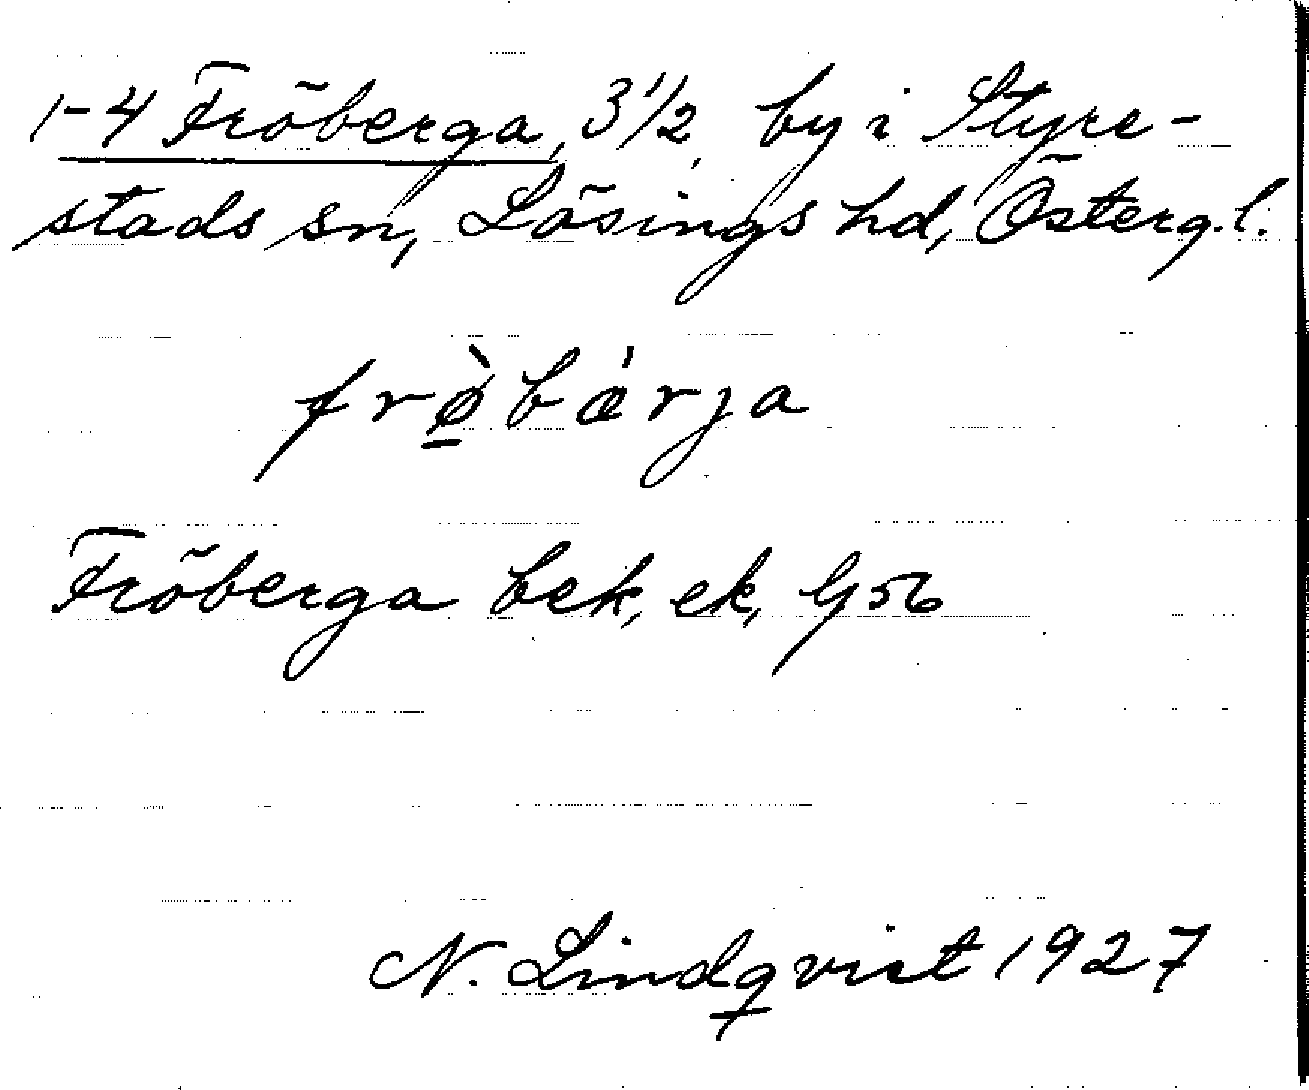 1-4 Fröberga, 3 1/2, by i Styre-
stads sn, Lösings hd, Österg.l.
frø̱̀bǽrja
Fröberga bek, ek, G 56
N. Lindqvist 1927